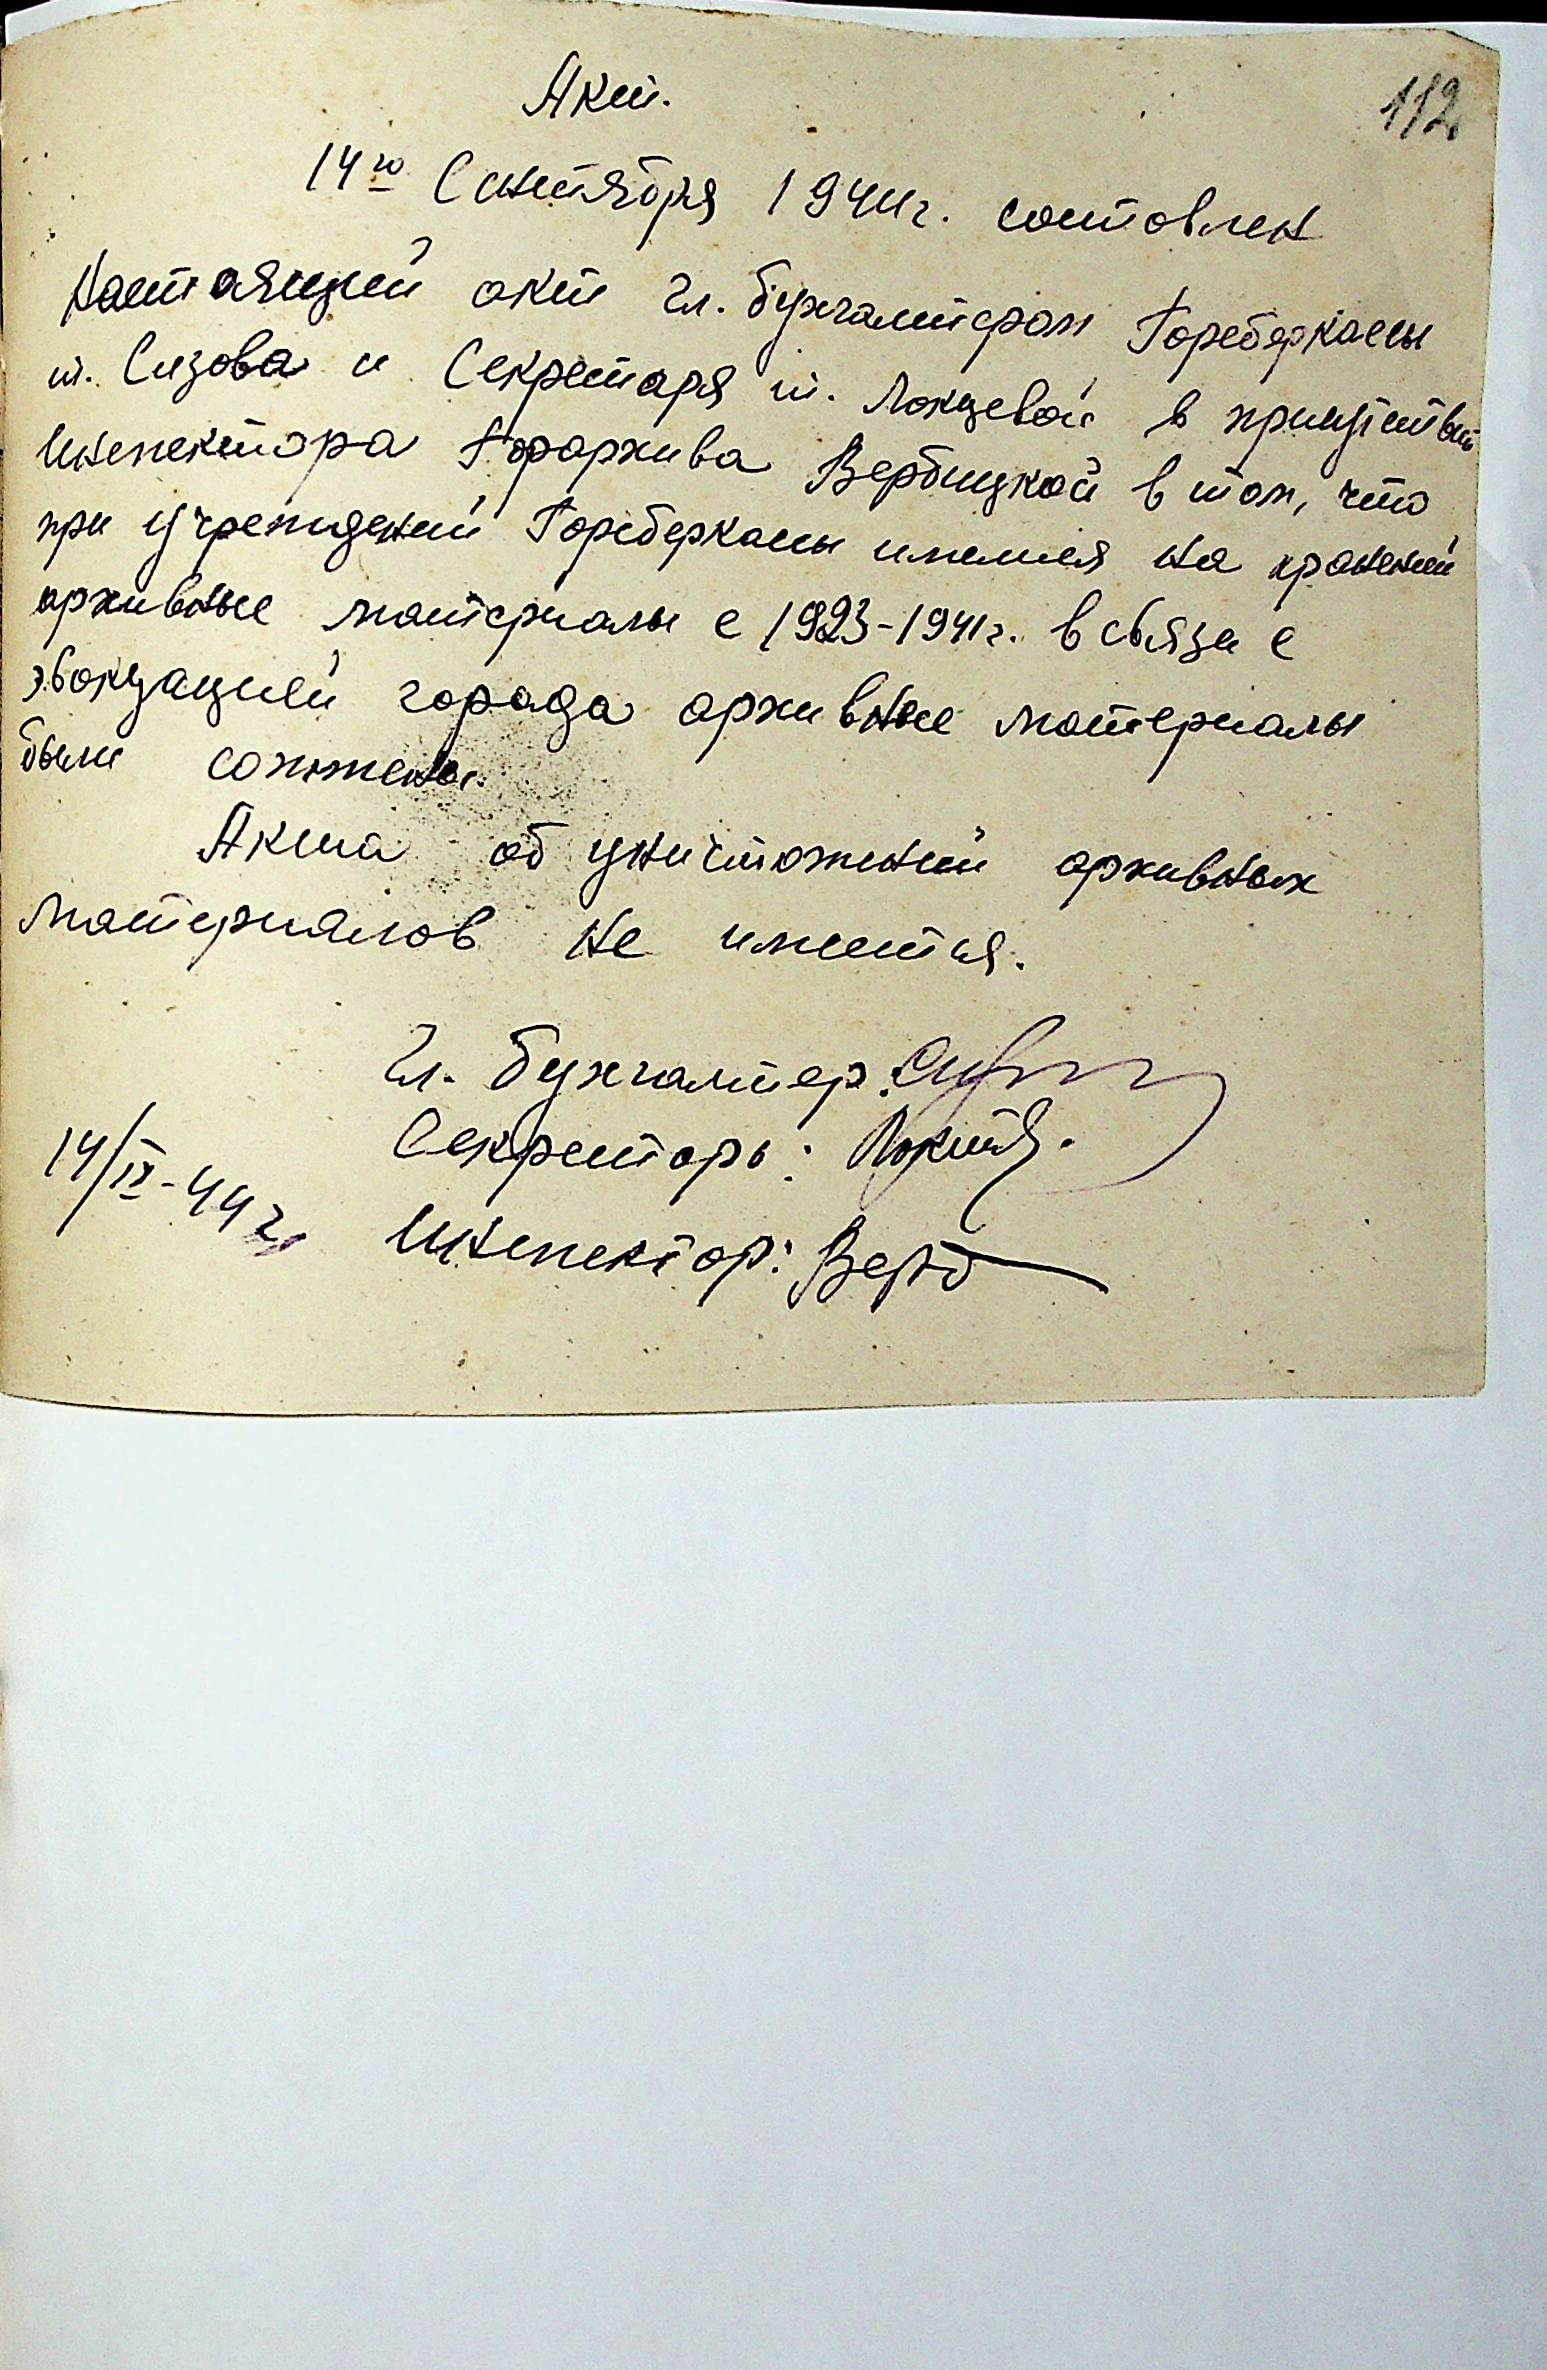 112
Акт.
14го Сентября 1944г. составлен
настоящий акт Гл. бухгалтером Горсберкассы
т. Сизова и Секретаря т. Локцевой в присутствии
Инспектора Горархива Вербицкой в том, что
при учреждении Горсберкассы имелися на хранении
архивные материалы с 1923-1941г. в связи с
эвокуацией города архивные материалы
были сожжены.
Акта об уничтожении архивных
материалов не имеется.
Гл. бухгалтер:
Секретарь:
14/IX-44г.
Инспектор: Верб